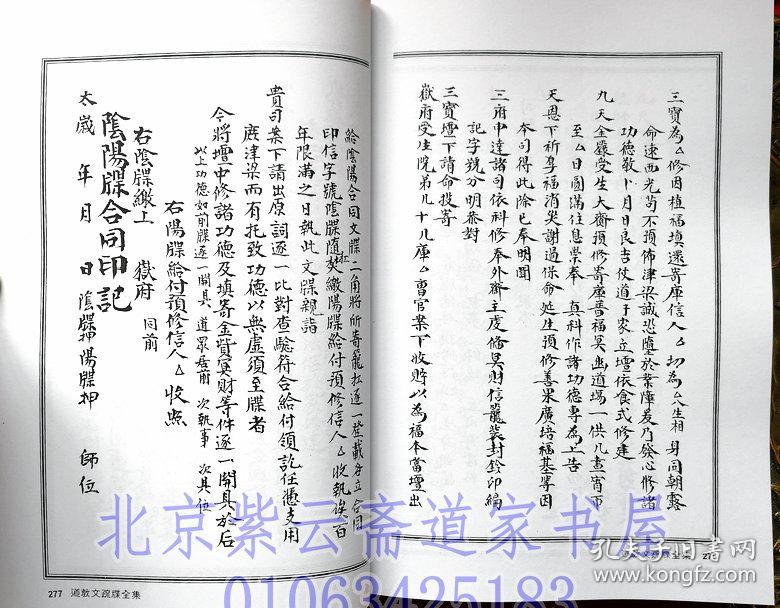 三寶為厶修因植福填還寄庫信人厶切為厶人生相身同朝露
命速西光苟不預佈津梁誠恐墮於業障爰乃發心修諸
功德敬卜月日良吉仗道于家立壇依食式修建
九天金籙受生大齋預修寄庫普福冥幽道場一供几晝宵下
至厶日圓滿住息崇奉 真科作諸功德專為上告
天恩下祈享福消災謝過保命延生預修善果廣培福基學因
本司得此除已奉明聞
三府申達諸司依科修奉外齋主虔備冥財信籠裝封銓印編
記字號分明恭對
三寶壇下請命投寄
嶽府受生院第几十几庫厶曹官案下收貯以為福本當壇出
給陰陽合同文牒二角將所寄籠杠逐一登載各立合同
印信字號陰牒隨杠焚繳陽牒給付預修信人厶收執俟百
年限滿之日執此文牒親詣
貴司案下請出原詞逐一比對查驗符合給付領訖任憑支用
庶津梁而有托致功德以無虛須至牒者
今將壇中修諸功德及填寄金貲冥財等件逐一開具於後
以上功德如前牒逐一開具 道眾居前 次執事 次具位
右陽牒給付預修信人厶收照
右陰牒繳上 嶽府 同前
陰陽牒合同印記
太歲 年 月 日 陰牒押 陽牒押 師位
277 道教文疏牒全集
道教文疏牒全集 27
北京紫云斋道家书屋
01063425183
孔夫子旧书网
www.kongfz.com